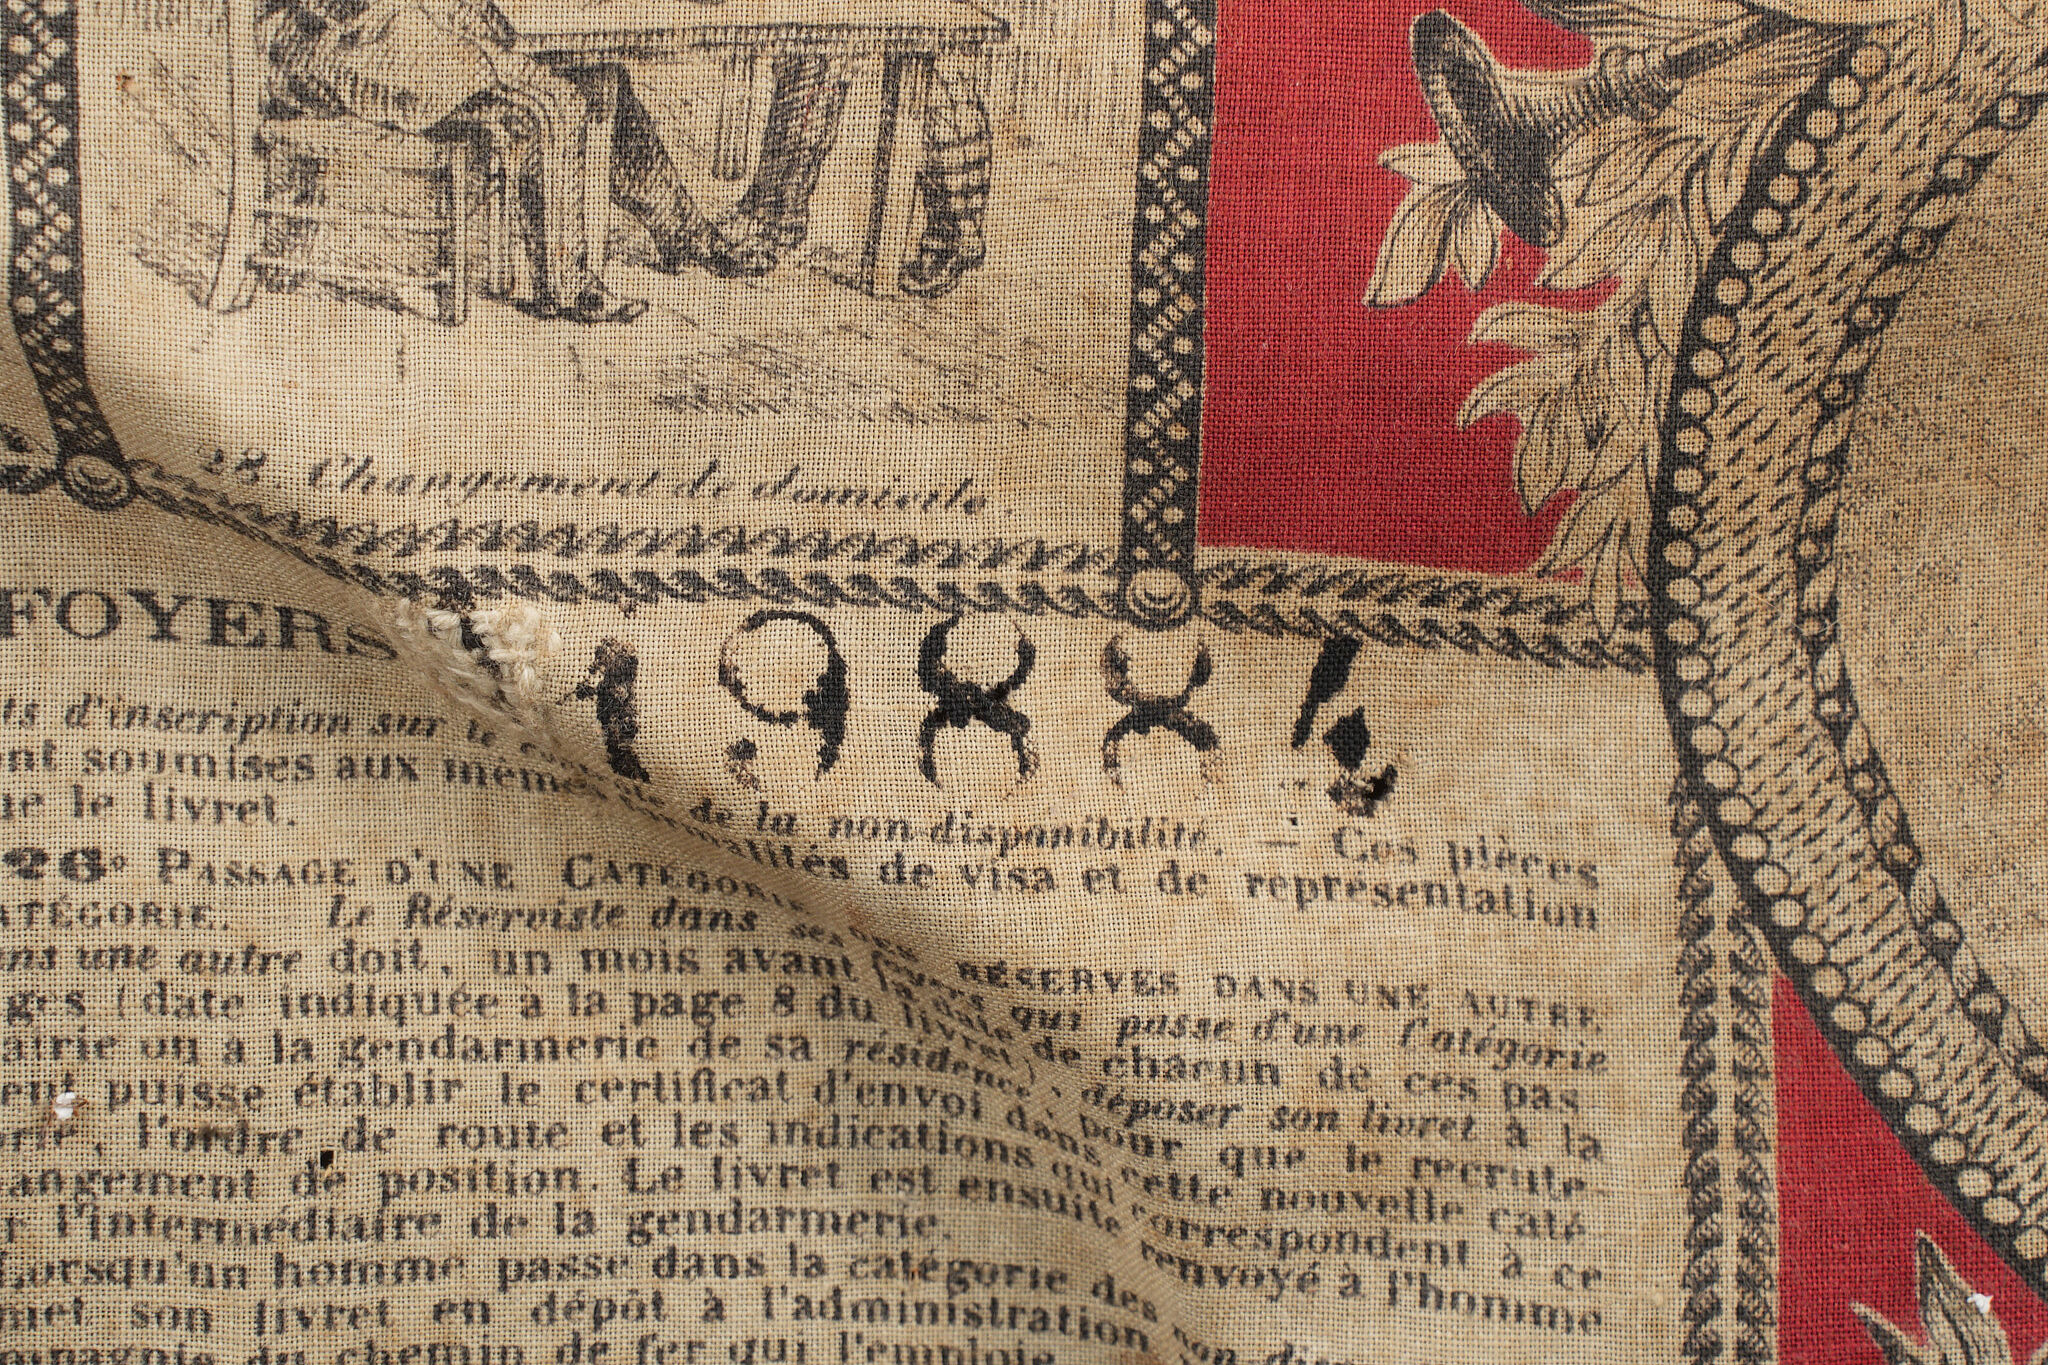 28. Changement de domicile.
FOYERS
19884
ts d'inscription sur le de la non-disponibilité. — Ces pièces
nt soumises aux mêmes formalités de visa et de représentation
ue le livret.
26° PASSAGE D'UNE CATÉGORIE DES RÉSERVES DANS UNE AUTRE
ATÉGORIE. Le Réserviste dans ses foyers qui passe d'une Catégorie
ans une autre doit, un mois avant la date de chacun de ces pas
ges (date indiquée à la page 8 du livret), déposer son livret à la
airie ou à la gendarmerie de sa résidence, pour que le recrute-
ent puisse établir le certificat d'envoi dans cette nouvelle caté
orie, l'ordre de route et les indications qui correspondent à ce
angement de position. Le livret est ensuite renvoyé à l'homme
r l'intermédiaire de la gendarmerie.
Lorsqu'un homme passe dans la catégorie des non-dis
met son livret en dépôt à l'administration
mpagnie du chemin de fer qui l'emploie